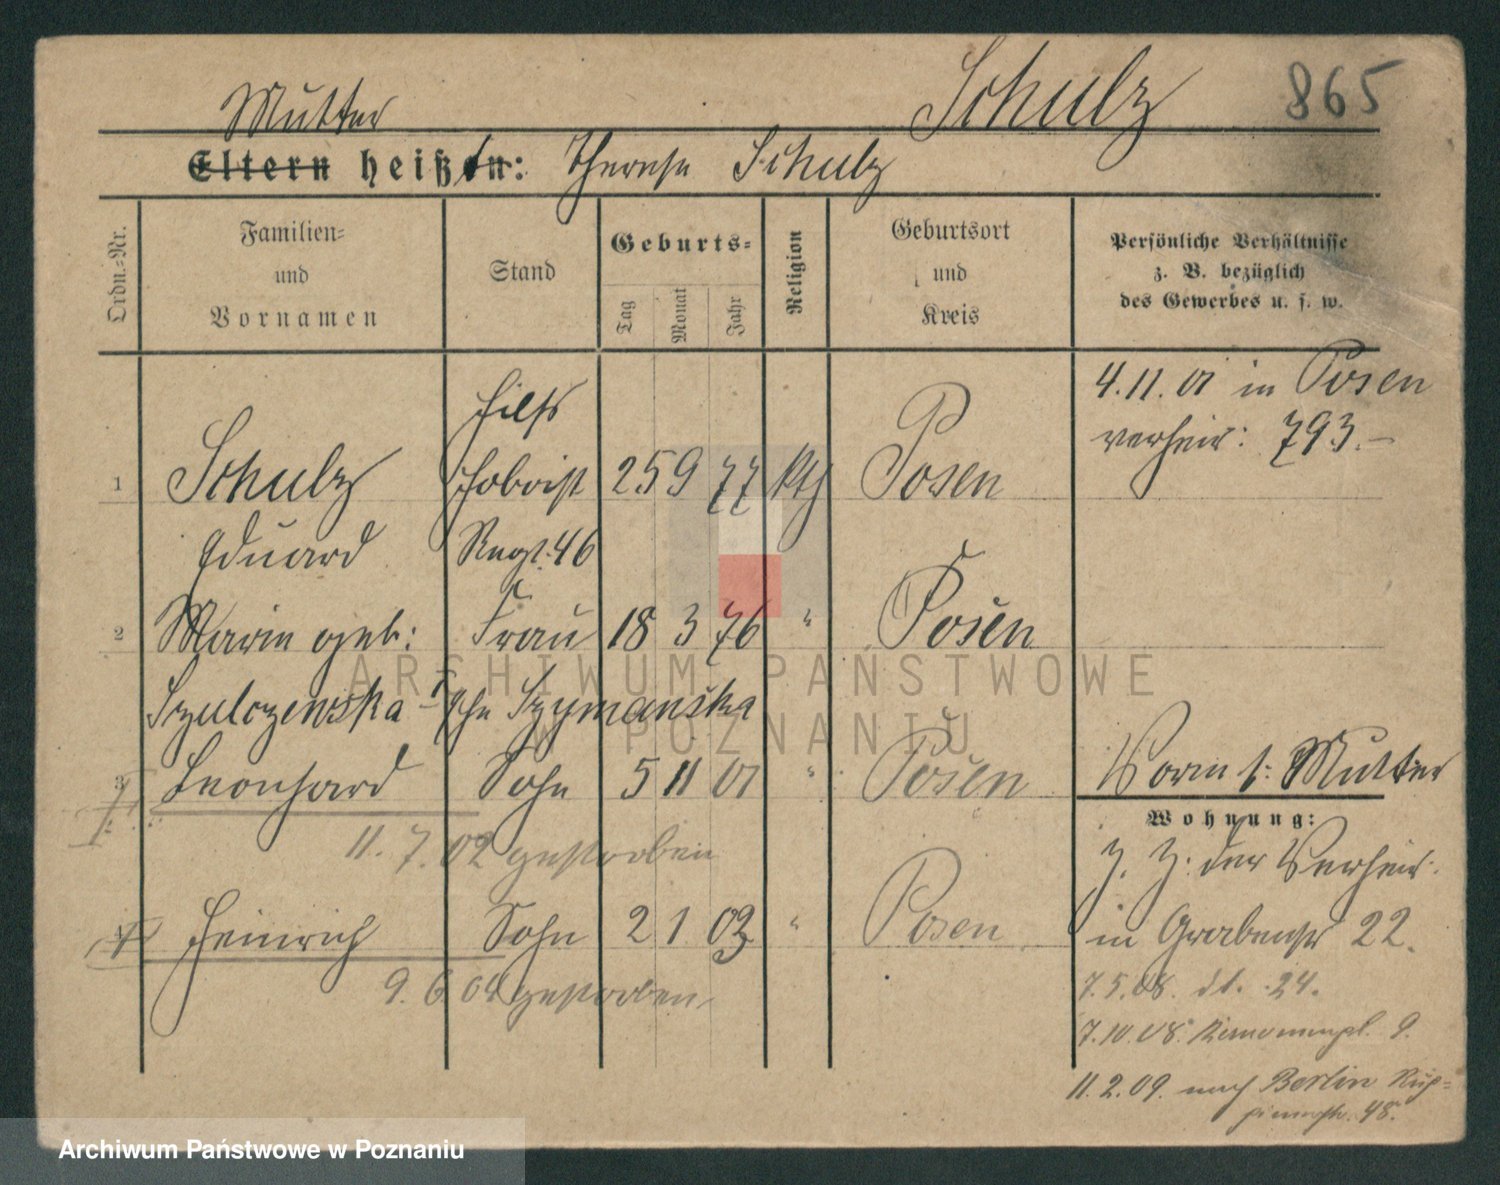 Schulz 865
Mutter
Eltern heißt: Therese Schulz
Ordn.-Nr.
Familien-
und
Vornamen
Stand
Geburts-
Tag
Monat
Jahr
Religion
Geburtsort
und
Kreis
Persönliche Verhältnisse
z. B. bezüglich
des Gewerbes u. s. w.
4.11.01 in Posen
verheir: 793.-
Hilfs
1 Schulz Hoboist 25 9 77 kth Posen
Eduard Regt. 46
2 Marie geb: Frau 18 3 76 " Posen
Szulczewska Szymanska
3 Leonhard Sohn 5 11 01 " Posen
11. 7. 02 gestorben
4 Heinrich Sohn 2 1 03 " Posen
9. 6 04 gestorben
Vorm s: Mutter
Wohnung:
z. Z: der Verheir:
in Grabenstr 22.
7.5.08. dt. 24.
7.10.08. 9.
11.2.09. nach Berlin Rup-
pinerstr. 48.
ARCHIWUM PAŃSTWOWE
W POZNANIU
Archiwum Państwowe w Poznaniu